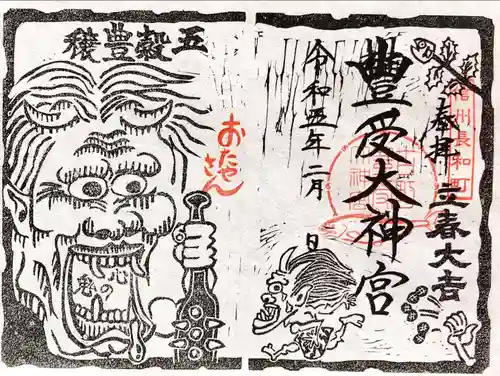 信州長和町
奉拝 立春大吉
豐受大神宮
令和五年二月 日
五穀豊穣
おたやさん
心の